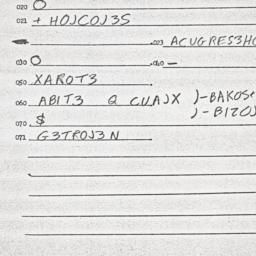 020 O
021 + HOJCOJ3S
023 ACUGRES3HO
030 O 040 —
050 XAROT3
060 ABIT3 Q CUAJX )-BAKOS
)-BIZOJ
070 $
071 G3TROJ3N